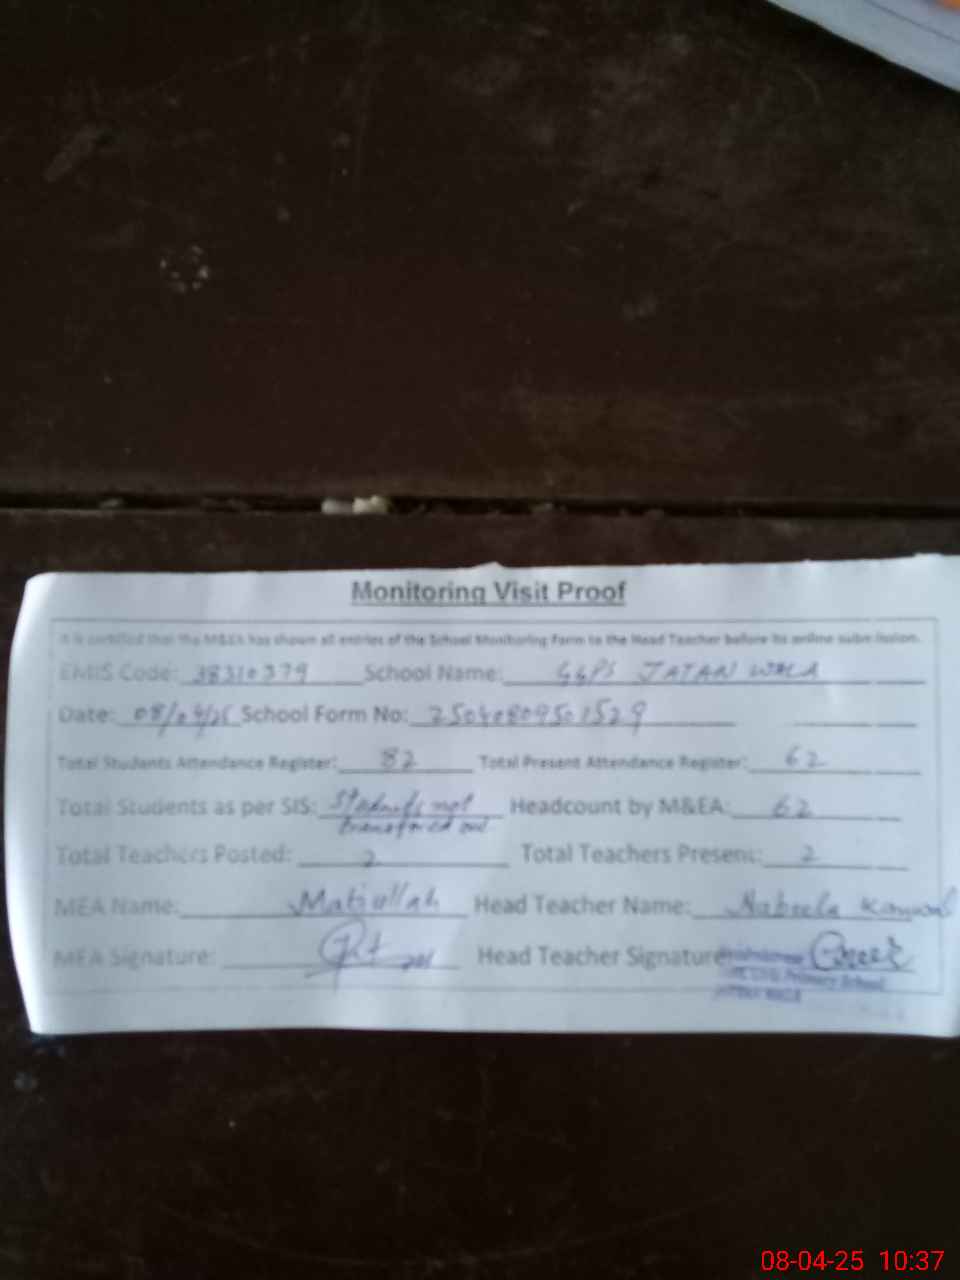 Monitoring Visit Proof
It is certified that the M&EA has shown all entries of the School Monitoring Form to the Head Teacher before its online submission.
EMIS Code: 38310379 School Name: GGPS JATAN WALA
Date: 08/04/25 School Form No: 25040809501529
Total Students Attendance Register: 82 Total Present Attendance Register: 62
Total Students as per SIS: Students not transfered out Headcount by M&EA: 62
Total Teachers Posted: 2 Total Teachers Present: 2
MEA Name: Matiullah Head Teacher Name: Nabeela Kanwal
MEA Signature: Head Teacher Signature:
Primary School
08-04-25 10:37